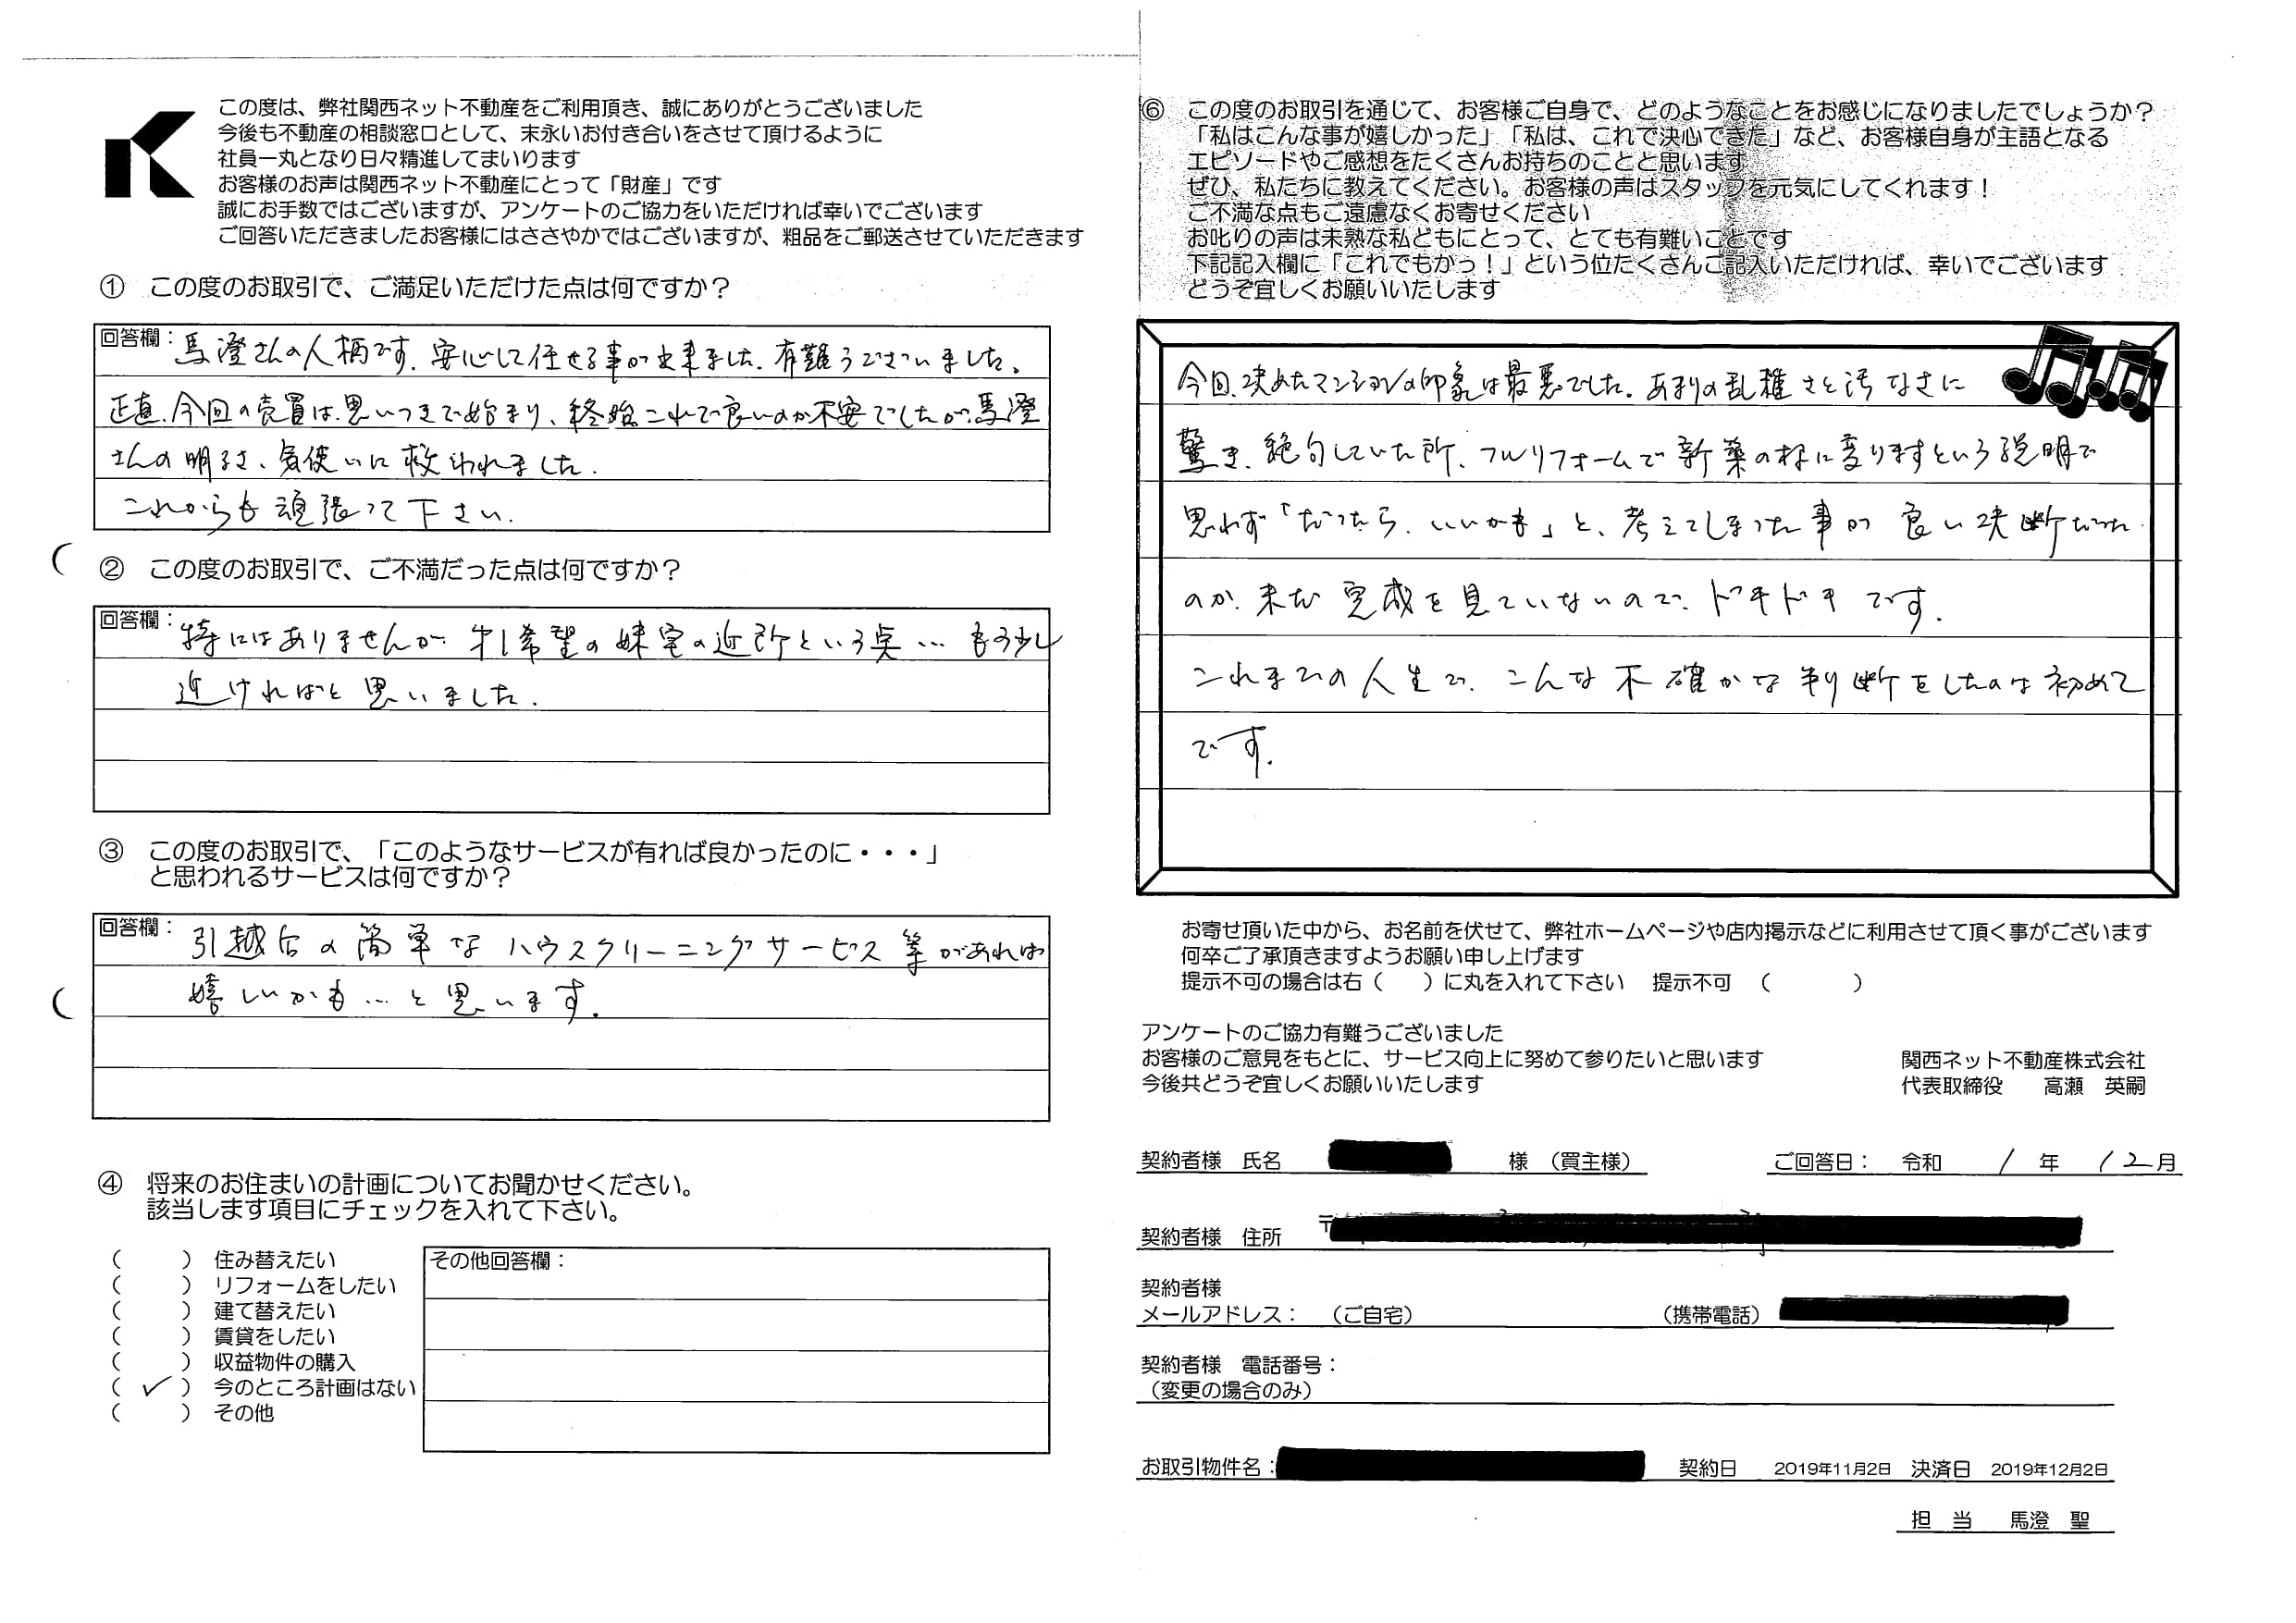 この度は、弊社関西ネット不動産をご利用頂き、誠にありがとうございました
今後も不動産の相談窓口として、末永いお付き合いをさせて頂けるように
社員一丸となり日々精進してまいります
お客様のお声は関西ネット不動産にとって「財産」です
誠にお手数ではございますが、アンケートのご協力をいただければ幸いでございます
ご回答いただきましたお客様にはささやかではございますが、粗品をご郵送させていただきます
① この度のお取引で、ご満足いただけた点は何ですか？
回答欄：馬澄さんの人柄です。安心して任せる事が出来ました。有難うございました。
正直、今回の売買は、思いつきで始まり、終始これで良いのか不安でしたが、馬澄
さんの明るさ、気使いに救われました。
これからも頑張って下さい。
② この度のお取引で、ご不満だった点は何ですか？
回答欄：特にはありませんが、才1希望の妹宅の近所という点… もう少し
近ければと思いました。
③ この度のお取引で、「このようなサービスが有れば良かったのに・・・」
と思われるサービスは何ですか？
回答欄：引越后の簡単なハウスクリーニングサービス等があれば
嬉しいかも…と思います。
④ 将来のお住まいの計画についてお聞かせください。
該当します項目にチェックを入れて下さい。
（　　）住み替えたい
（　　）リフォームをしたい
（　　）建て替えたい
（　　）賃貸をしたい
（　　）収益物件の購入
（ ✓ ）今のところ計画はない
（　　）その他
その他回答欄：
⑥ この度のお取引を通じて、お客様ご自身で、どのようなことをお感じになりましたでしょうか？
「私はこんな事が嬉しかった」「私は、これで決心できた」など、お客様自身が主語となる
エピソードやご感想をたくさんお持ちのことと思います
ぜひ、私たちに教えてください。お客様の声はスタッフを元気にしてくれます！
ご不満な点もご遠慮なくお寄せください
お叱りの声は未熟な私どもにとって、とても有難いことです
下記記入欄に「これでもかっ！」という位たくさんご記入いただければ、幸いでございます
どうぞ宜しくお願いいたします
今回、決めたマンションの印象は最悪でした。あまりの乱雑さと汚なさに
驚き、絶句していた所、フルリフォームで新築の様に変りますという説明で
思わず「だったら、いいかも」と、考えてしまった事が良い決断だった
のか、未だ完成を見ていないので、ドキドキです。
これまでの人生で、こんな不確かな判断をしたのは初めて
です。
お寄せ頂いた中から、お名前を伏せて、弊社ホームページや店内掲示などに利用させて頂く事がございます
何卒ご了承頂きますようお願い申し上げます
提示不可の場合は右（　　）に丸を入れて下さい　提示不可　（　　　　）
アンケートのご協力有難うございました
お客様のご意見をもとに、サービス向上に努めて参りたいと思います
今後共どうぞ宜しくお願いいたします
関西ネット不動産株式会社
代表取締役　高瀬　英嗣
契約者様　氏名　様　（買主様）　ご回答日：　令和　1　年　12月
契約者様　住所　〒
契約者様
メールアドレス：　（ご自宅）　（携帯電話）
契約者様　電話番号：
（変更の場合のみ）
お取引物件名：　契約日　2019年11月2日　決済日　2019年12月2日
担　当　馬澄　聖